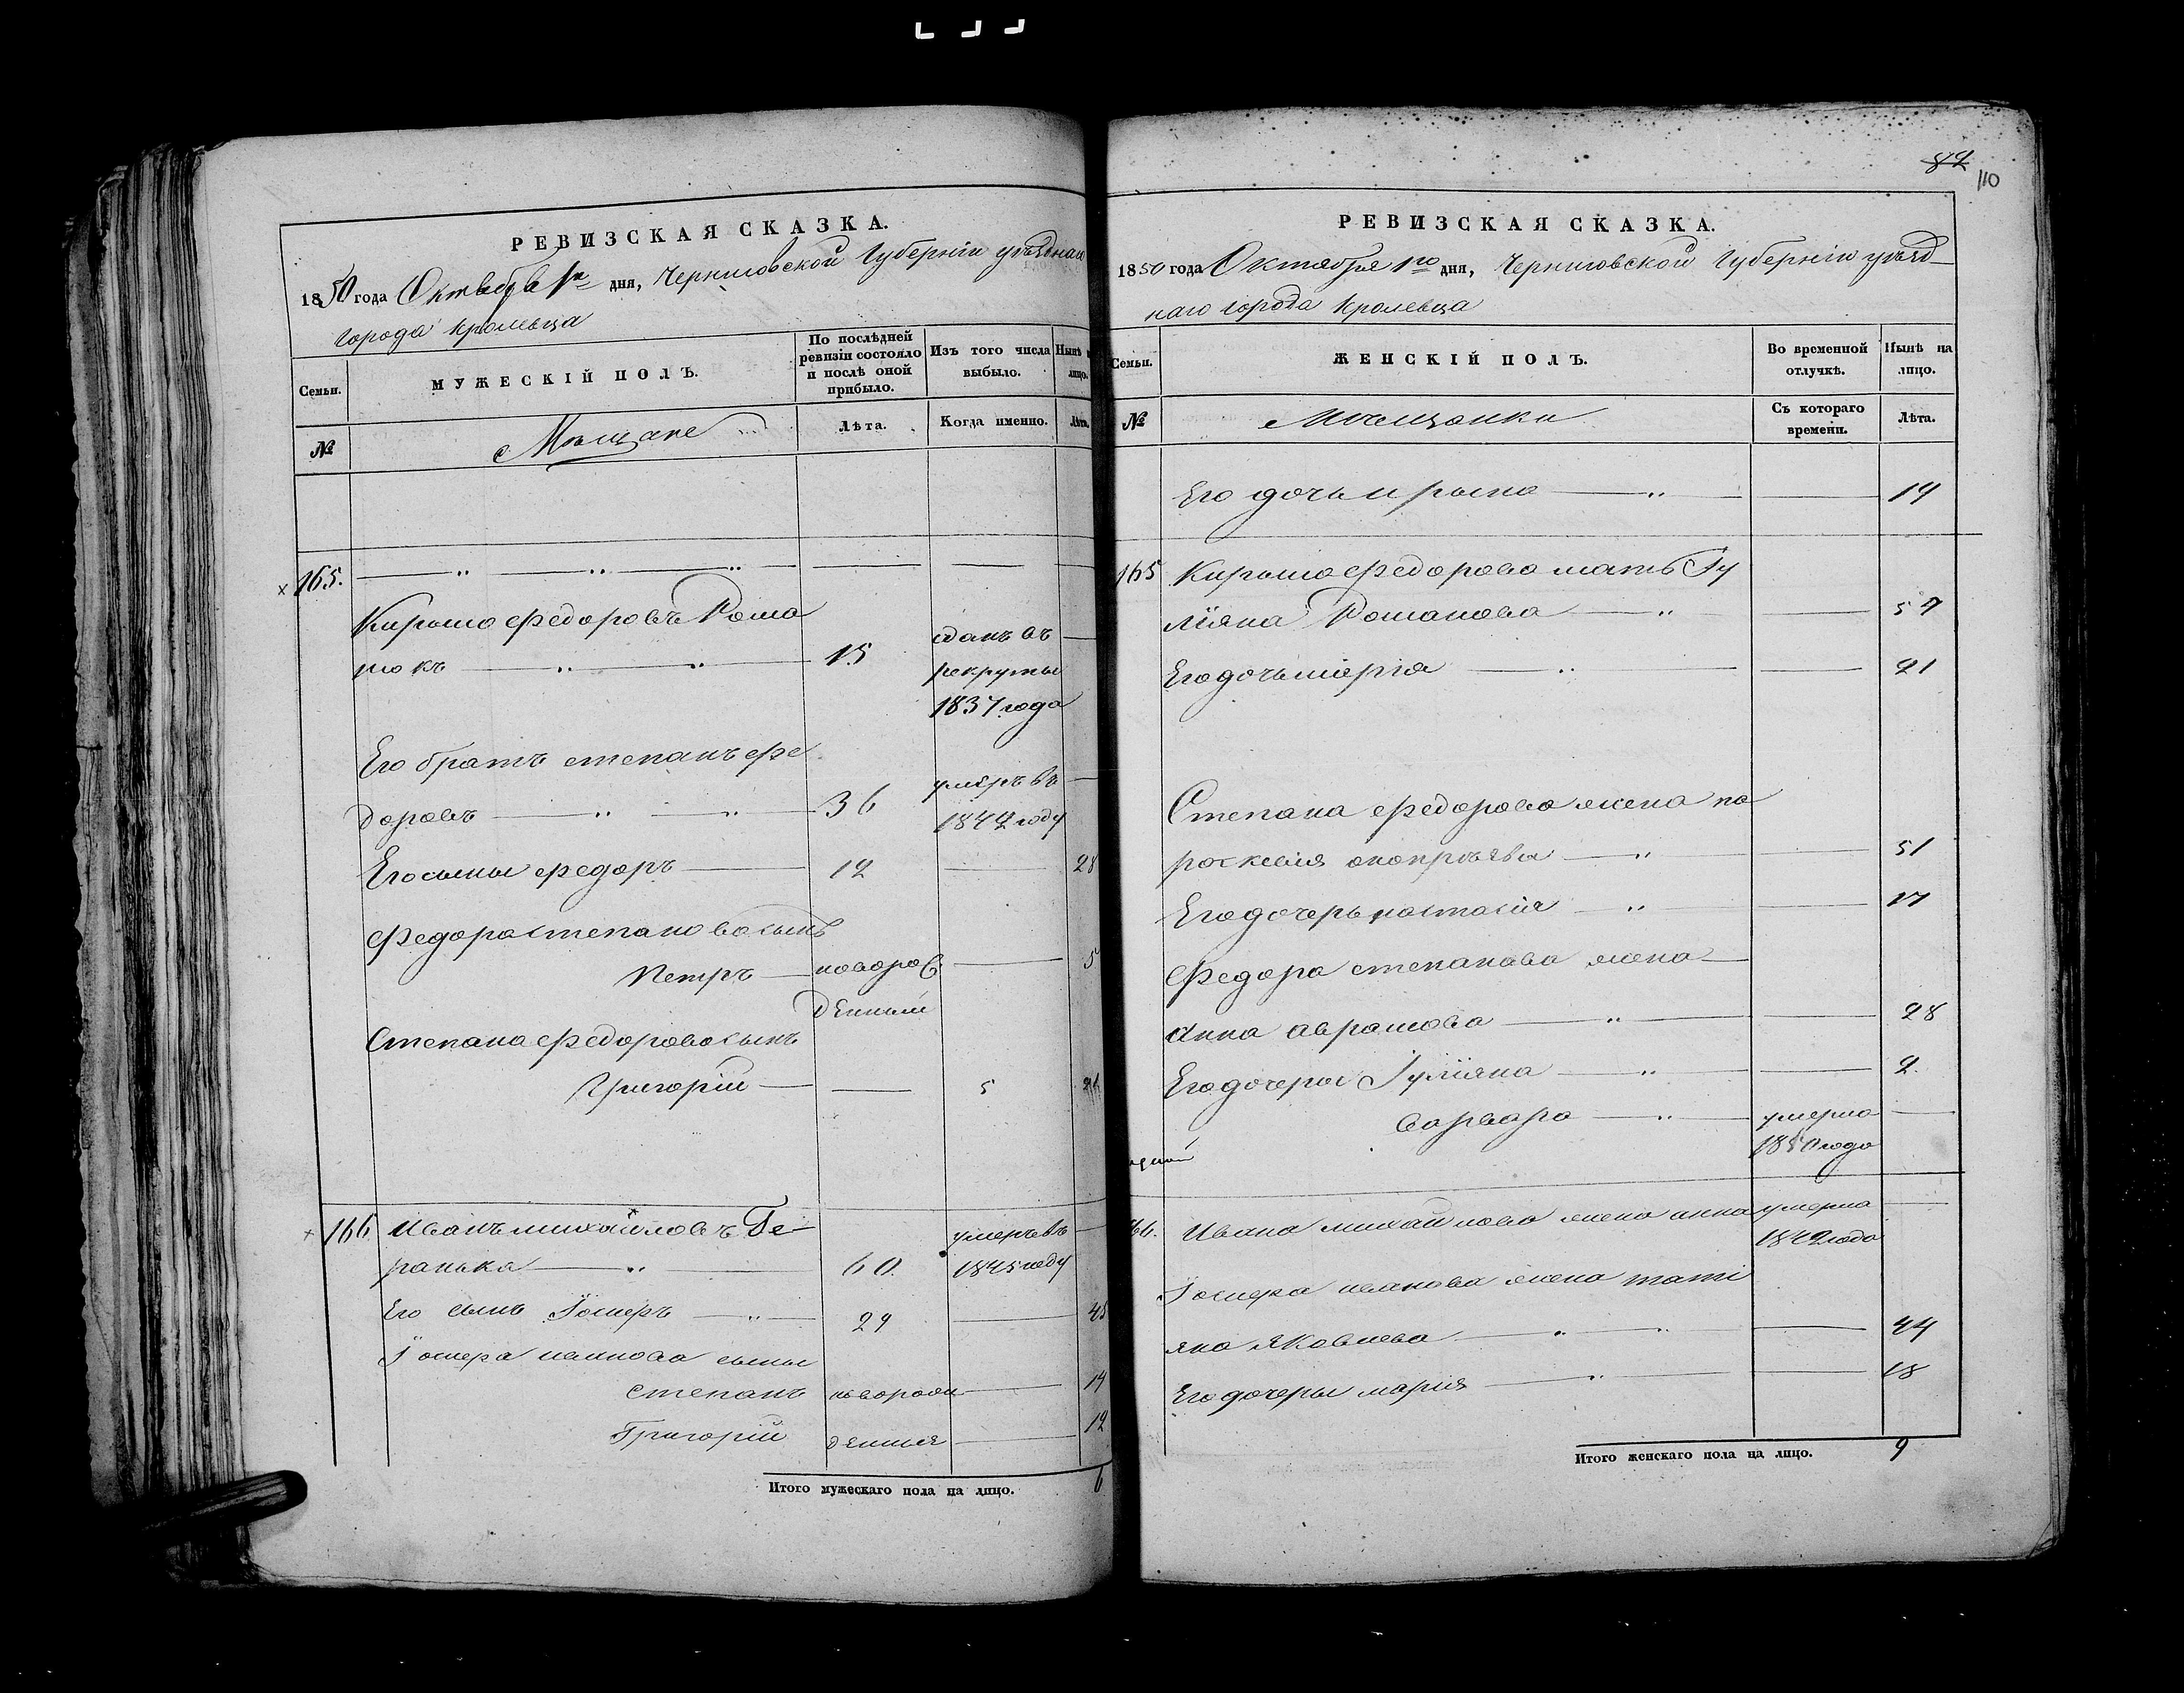 РЕВИЗСКАЯ СКАЗКА.
1850 года Октября 1го дня, Черниговской Губерніи уѣзднаго
города Кролевца
Семьи. МУЖЕСКІЙ ПОЛЪ. По послѣдней ревизіи состояло и послѣ оной прибыло. Изъ того числа выбыло. Нынѣ на лицо.
№ Мѣщане Лѣта. Когда именно. Лѣта.
165.
Кирыло Федоровъ Рома
нюкъ 15 сданъ въ
рекруты
1837 года
Его братъ степанъ фе
доровъ 36 умеръ въ
1844 году
Его сыны федоръ 12 28
Федора степанова сынъ
Петръ новорож 5
денный
Степана федорова сынъ
Григорій 5 21
166 Иванъ михайловъ Ге-
ранька 60. умеръ въ
1845 году
Его сынъ Іосиръ 29 45
Іосира иванова сыны
степанъ новорож 14
Григорій денныя 12
Итого мужескаго пола на лицо. 6
82
110
РЕВИЗСКАЯ СКАЗКА.
1850 года Октября 1го дня, Черниговской Губерніи уѣзд-
наго города Кролевца
Семьи. ЖЕНСКІЙ ПОЛЪ. Во временной отлучкѣ. Нынѣ на лицо.
№ Мѣщанки Съ котораго времени. Лѣта.
Его дочь ирына 14
165 Кирыла федорова мать Гу
ліяна Романова 57
Его дочь марія 21
Степана федорова жена па
роскевія 51
Его дочерь настасія 17
Федора степанова жена
Анна аврамова 28
Его дочеры Гуліяна 2
варвара умерла
1850 года
166. Ивана михайлова жена анна умерла
1842 года
Іосира иванова жена таті
яна Яковлева 44
Его дочеры марія 18
Итого женскаго пола на лицо. 9